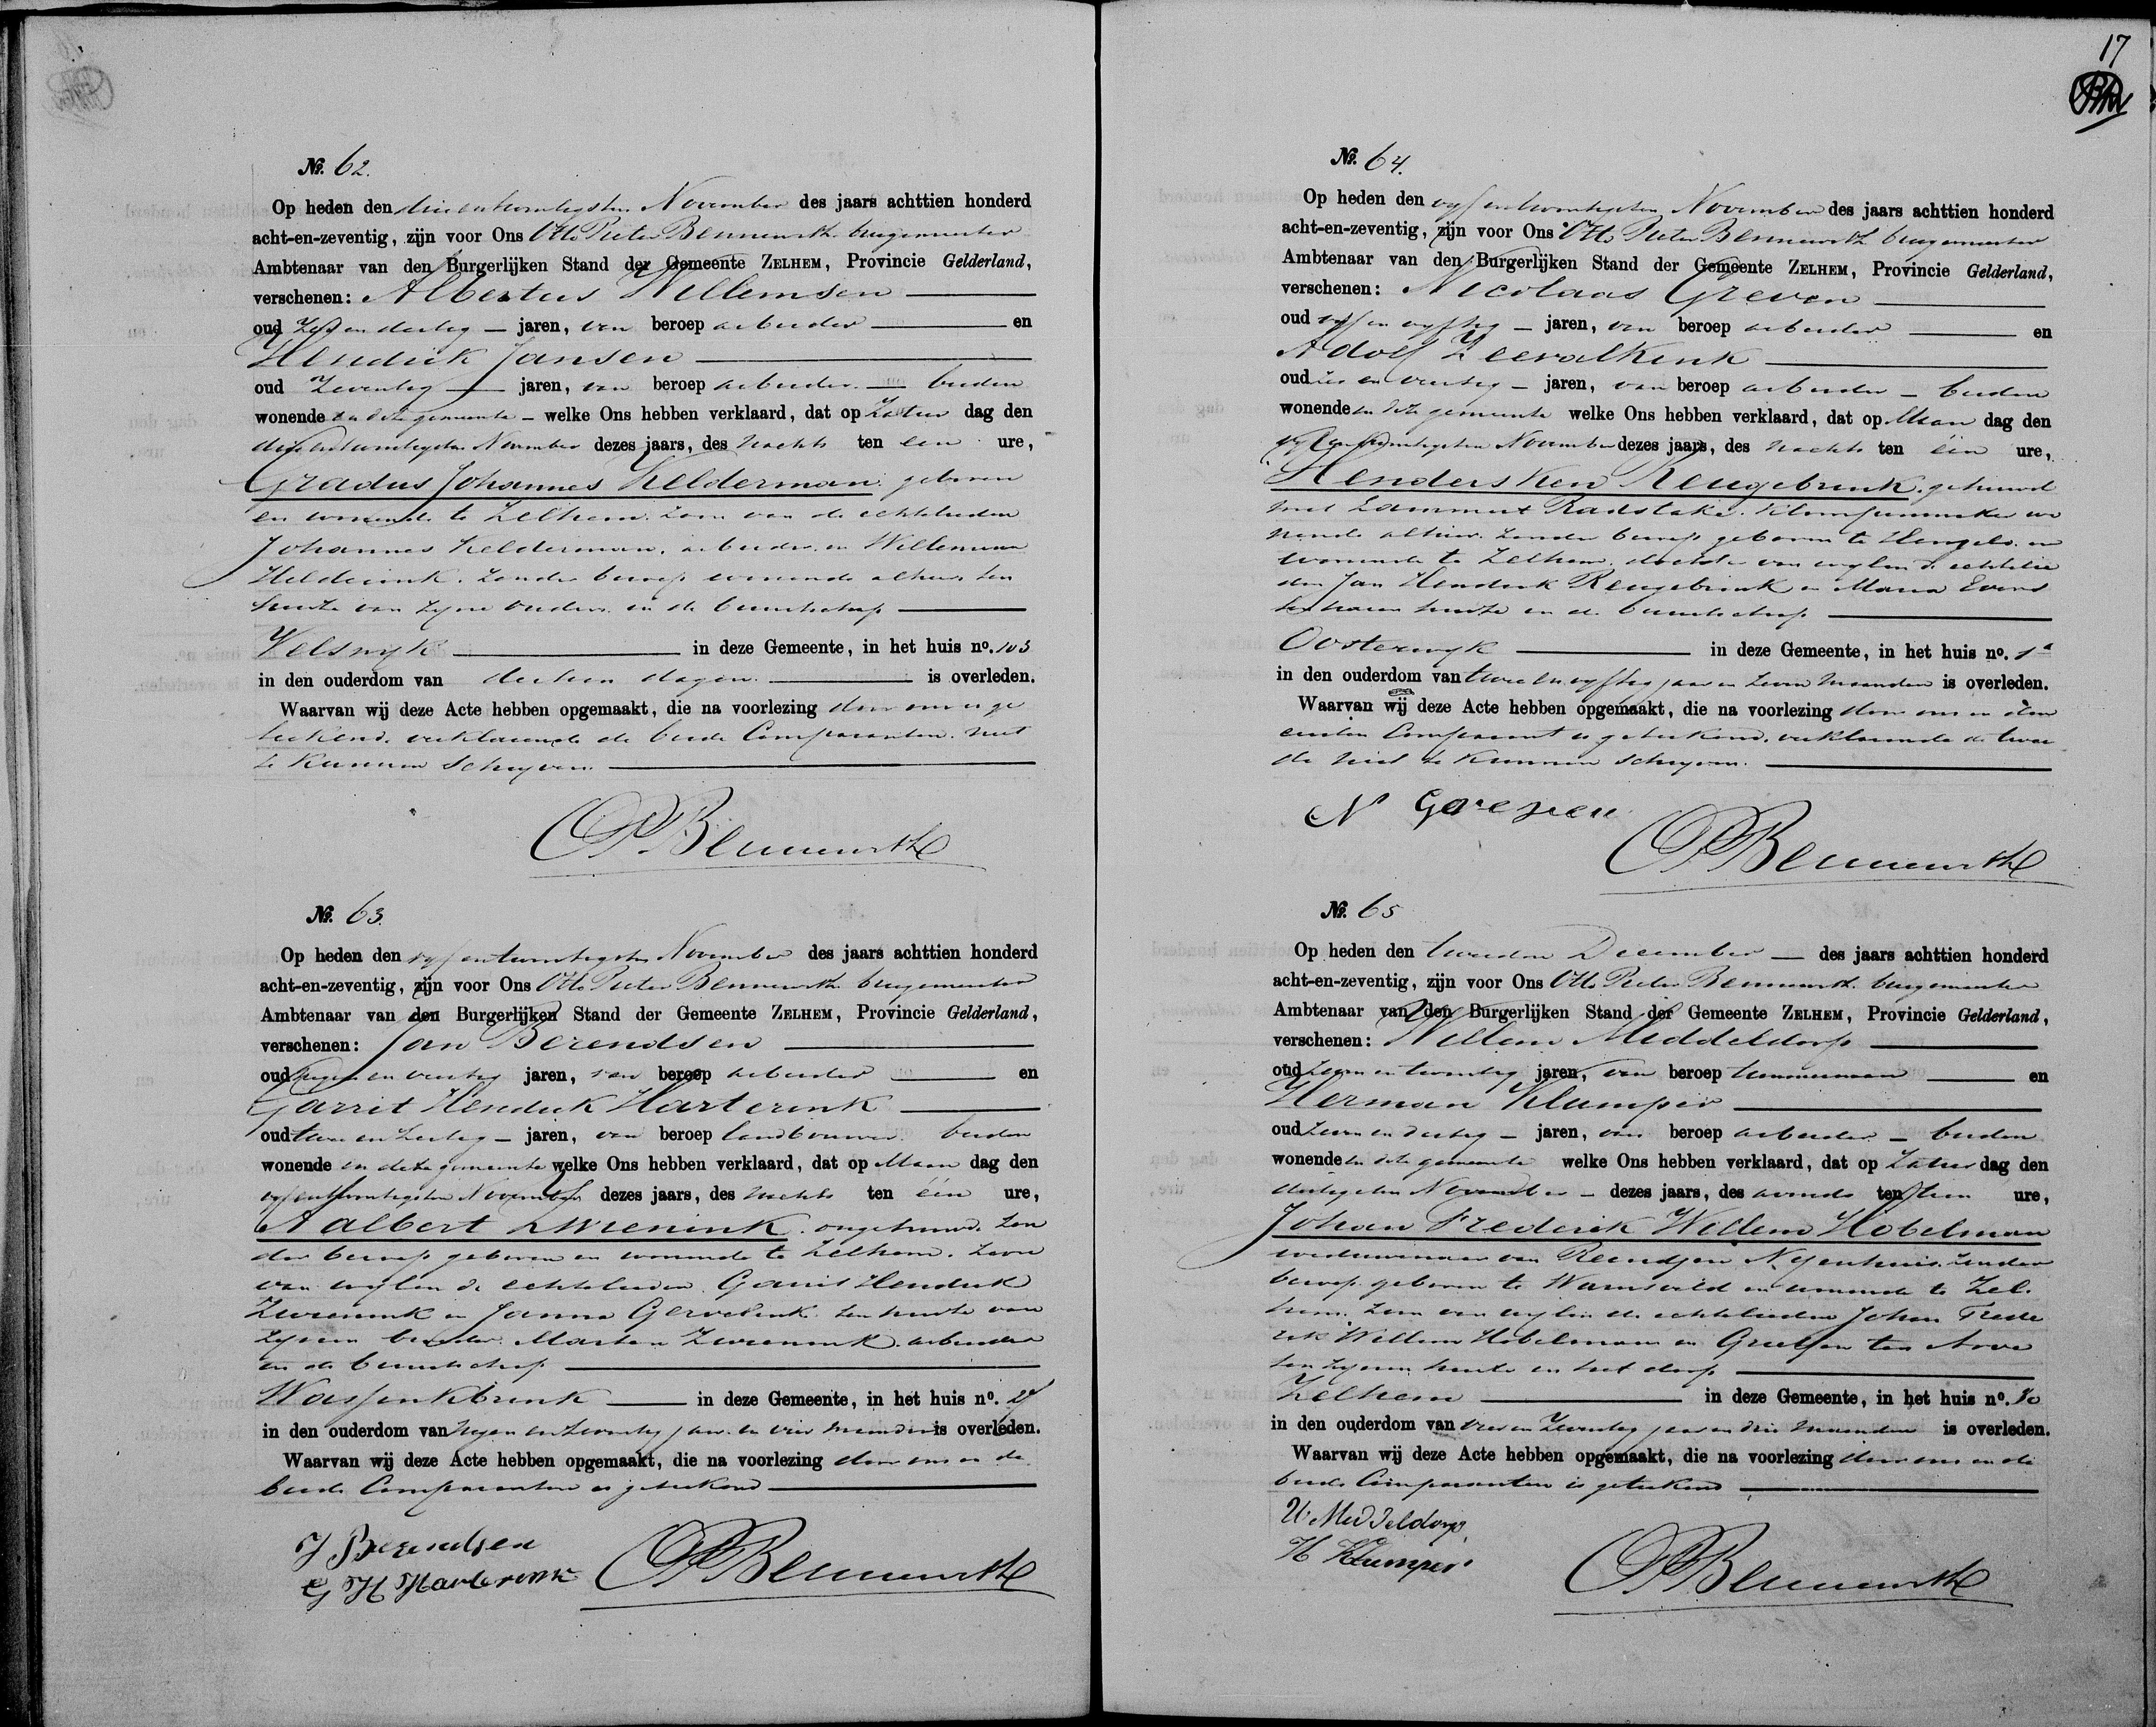 No. 62.
Op heden den drie en twintigsten November des jaars achttien honderd
acht-en-zeventig, zijn voor Ons Otto Pieter Bennewitz burgemeester
Ambtenaar van den Burgerlijken Stand der Gemeente ZELHEM, Provincie Gelderland,
verschenen: Albertus Willemsen
oud en dertig jaren, van beroep arbeider en
Hendrik Jansen
oud Zeventig jaren, van beroep arbeider beiden
wonende in deze gemeente welke Ons hebben verklaard, dat op Zatur dag den
drie en twintigsten November dezes jaars, des nachts ten een ure,
Gradus Johannes Kelderman. geboren
en wonende te Zelhem. Zoon van de echtelieden
Johannes Kelderman, arbeider en Willemina
Helderink. Zonder beroep wonende alhier ten
huize van zyne ouders in de buurtschap
Velswyk in deze Gemeente, in het huis no. 103
in den ouderdom van dertien dagen is overleden.
Waarvan wij deze Acte hebben opgemaakt, die na voorlezing door ons is ge
teekend. verklarende de beide Comparanten niet
te kunnen schryven.
OPBennewitz
No. 63.
Op heden den vyf en twintigsten November des jaars achttien honderd
acht-en-zeventig, zijn voor Ons Otto Pieter Bennewitz burgemeester
Ambtenaar van den Burgerlijken Stand der Gemeente ZELHEM, Provincie Gelderland,
verschenen: Jan Berendsen
oud negen en veertig jaren, van beroep arbeider en
Garrit Hendrik Harterink
oud twee en zestig jaren, van beroep landbouwer beiden
wonende in deze gemeente welke Ons hebben verklaard, dat op Maan dag den
vyf en twintigsten November dezes jaars, des nachts ten één ure,
Aalbert Zwienink. ongehuwd. Zon
der beroep geboren en wonende te Zelhem. Zoon
van wylen de echtelieden Garrit Hendrik
Zwienink en Janna Gervelink ten huize van
zynen broeder Marten Zwienink arbeider
in de buurtschap
Wassinkbrink in deze Gemeente, in het huis no.
in den ouderdom van negen en zeventig jaar en vier maanden is overleden.
Waarvan wij deze Acte hebben opgemaakt, die na voorlezing door ons en de
beide Comparanten is geteekend
J Berendsen
G H Harterink
OPBennewitz
17
No. 64.
Op heden den vyf en twintigsten November des jaars achttien honderd
acht-en-zeventig, zijn voor Ons Otto Pieter Bennewitz burgemeester
Ambtenaar van den Burgerlijken Stand der Gemeente ZELHEM, Provincie Gelderland,
verschenen: Nicolaas Greven
oud vyf en vyftig jaren, van beroep arbeider en
Adolf Zeevalkink
oud zes en veertig jaren, van beroep arbeider beiden
wonende in deze gemeente welke Ons hebben verklaard, dat op Maan dag den
vyf en twintigsten November dezes jaars, des nachts ten één ure,
Hendersken Reugebrink. gehuwd
met Lammert Radstake. Klompenmaker wo
nende alhier. Zonder beroep geboren te Hengelo en
wonende te Zelhem. dochter van wylen de echtelie
den Jan Hendrik Reugebrink en Maria Evers
ten haren huize in de buurtschap
Oosterwyk in deze Gemeente, in het huis no. 1a
in den ouderdom van twee en vyftig jaar en zeven maanden is overleden.
Waarvan wij deze Acte hebben opgemaakt, die na voorlezing door ons en den
eersten Comparant is geteekend. verklarende de twee
de niet te kunnen schryven.
N Greven
OPBennewitz
No. 65
Op heden den tweeden December des jaars achttien honderd
acht-en-zeventig, zijn voor Ons Otto Pieter Bennewitz burgemeester
Ambtenaar van den Burgerlijken Stand der Gemeente ZELHEM, Provincie Gelderland,
verschenen: Willem Middeldorp
oud zeven en twintig jaren, van beroep timmerman en
Herman Klumper
oud zeven en dertig jaren, van beroep arbeider beiden
wonende in deze gemeente welke Ons hebben verklaard, dat op Zatur dag den
dertigsten November dezes jaars, des avonds ten tien ure,
Johan Frederik Willem Hobelman
weduwnaar van Reindjen Nyenhuis. Zonder
beroep. geboren te Warnsveld en wonende te Zel
hem. Zoon van wylen de echtelieden Johan Frede
rik Willem Hobelman en Geertjen ten Arve
ten zynen huize in het dorp
Zelhem in deze Gemeente, in het huis no. 80
in den ouderdom van vier en zeventig jaar en drie maanden is overleden.
Waarvan wij deze Acte hebben opgemaakt, die na voorlezing door ons en de
beide Comparanten is geteekend
W Middeldorp
H Klumper
OPBennewitz